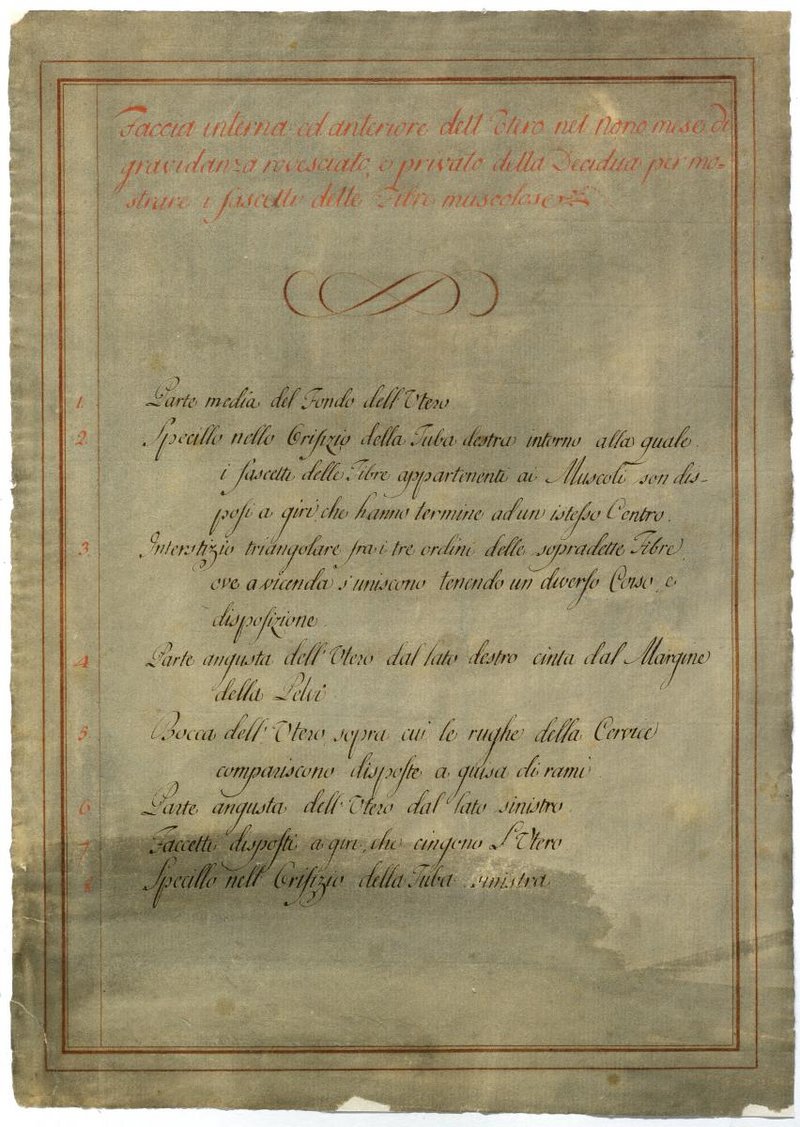 Faccia interna ed anteriore dell'Utero nel Nono mese di
gravidanza rovesciato, e privato della Decidua per mo-
strare i fascetti delle Fibre muscolose
1. Parte media del Fondo dell'Utero
2. Specillo nello Orifizio della Tuba destra intorno alla quale
i fascetti delle Fibre appartenenti ai Muscoli son dis-
posi a giri che hanno termine ad un istesso Centro.
3. Interstizio triangolare fra i tre ordini delle sopradette Fibre
ove a vicenda s'uniscono tenendo un diverso Corso, e
disposizione.
4. Parte angusta dell'Utero dal lato destro cinta dal Margine
della Pelvi
5. Bocca dell'Utero sopra cui le rughe della Cervice
compariscono disposte a guisa di rami
6. Parte angusta dell'Utero dal lato sinistro
7. Faccetti disposti a giri, che cingono l'Utero
8. Specillo nell'Orifizio della Tuba sinistra